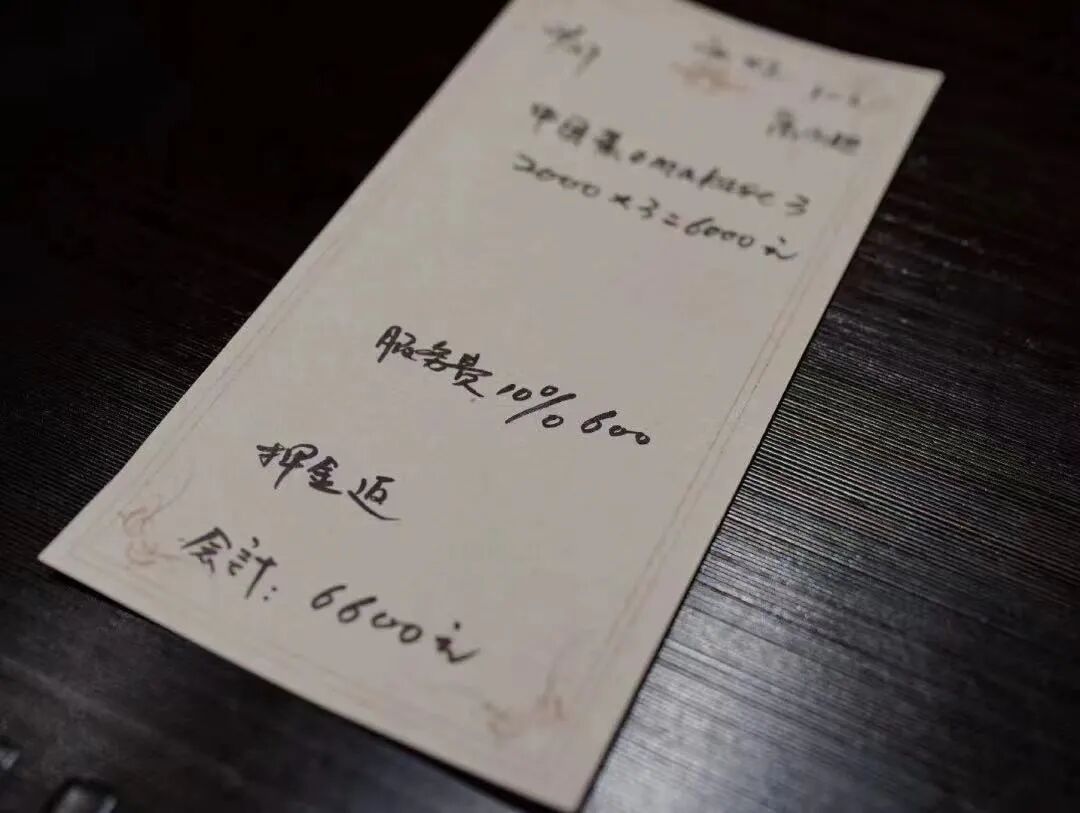 中国菜omakase 3
2000×3=6000元
服务费10% 600
押金返
会計: 6600元